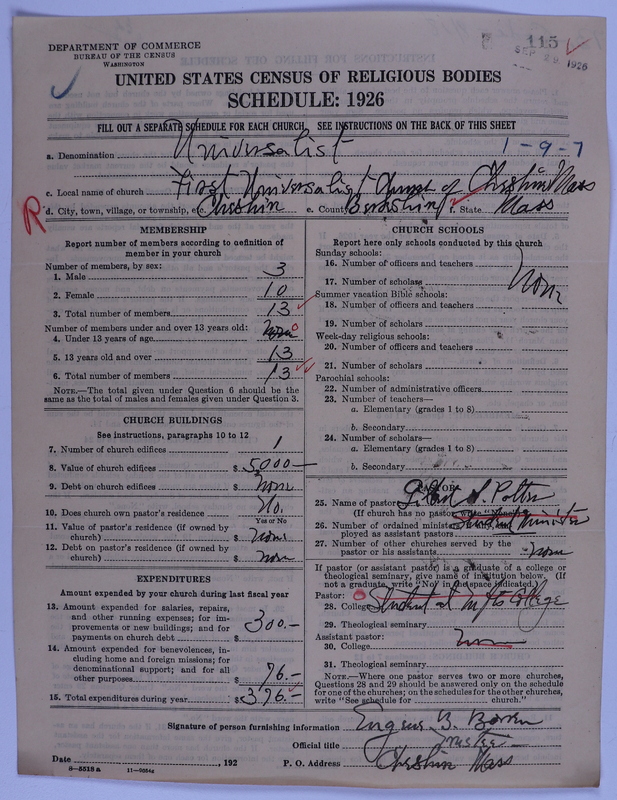 DEPARTMENT OF COMMERCE
BUREAU OF THE CENSUS
WASHINGTON
115
SEP 29 1926
UNITED STATES CENSUS OF RELIGIOUS BODIES
SCHEDULE: 1926
FILL OUT A SEPARATE SCHEDULE FOR EACH CHURCH. SEE INSTRUCTIONS ON THE BACK OF THIS SHEET
a. Denomination Universalist 1-9-7
c. Local name of church First Universalist Church of Cheshire Mass
R
d. City, town, village, or township, etc. Cheshire e. County Berkshire f. State Mass
MEMBERSHIP
Report number of members according to definition of
member in your church
Number of members, by sex:
1. Male 3
2. Female 10
3. Total number of members 13
Number of members under and over 13 years old:
4. Under 13 years of age None 0
5. 13 years old and over 13
6. Total number of members 13
NOTE.—The total given under Question 6 should be
same as the total of males and females given under Question 3.
CHURCH BUILDINGS
See instructions, paragraphs 10 to 12
7. Number of church edifices 1
8. Value of church edifices $ 5000—
9. Debt on church edifices $ None
10. Does church own pastor's residence No.
Yes or No
11. Value of pastor's residence (if owned by
church) $ None
12. Debt on pastor's residence (if owned by
church) $ None
EXPENDITURES
Amount expended by your church during last fiscal year
13. Amount expended for salaries, repairs,
and other running expenses; for im-
provements or new buildings; and for
payments on church debt $ 300.—
14. Amount expended for benevolences, in-
cluding home and foreign missions; for
denominational support; and for all
other purposes $ 76.—
15. Total expenditures during year $ 376.—
CHURCH SCHOOLS
Report here only schools conducted by this church
Sunday schools:
16. Number of officers and teachers
17. Number of scholars None
Summer vacation Bible schools:
18. Number of officers and teachers
19. Number of scholars
Week-day religious schools:
20. Number of officers and teachers
21. Number of scholars
Parochial schools:
22. Number of administrative officers
23. Number of teachers—
a. Elementary (grades 1 to 8)
b. Secondary
24. Number of scholars—
a. Elementary (grades 1 to 8)
b. Secondary
PASTOR
25. Name of pastor
(If church has no pastor, write "None")
26. Number of ordained ministers Student Minister
ployed as assistant pastors
27. Number of other churches served by the
pastor or his assistants None
If pastor (or assistant pastor) is a graduate of a college or
theological seminary, give name of institution below. (If
not a graduate, write "No" in the space indicated.)
Pastor: 0
28. College Student at Tufts College
29. Theological seminary
Assistant pastor:
30. College None
31. Theological seminary
NOTE.—Where one pastor serves two or more churches,
Questions 28 and 29 should be answered only on the schedule
for one of the churches; on the schedules for the other churches,
write "See schedule for church."
Signature of person furnishing information Eugene B. Bowen
Official title Trustee
Date , 192 P. O. Address Cheshire Mass
8-5518a 11-9054c